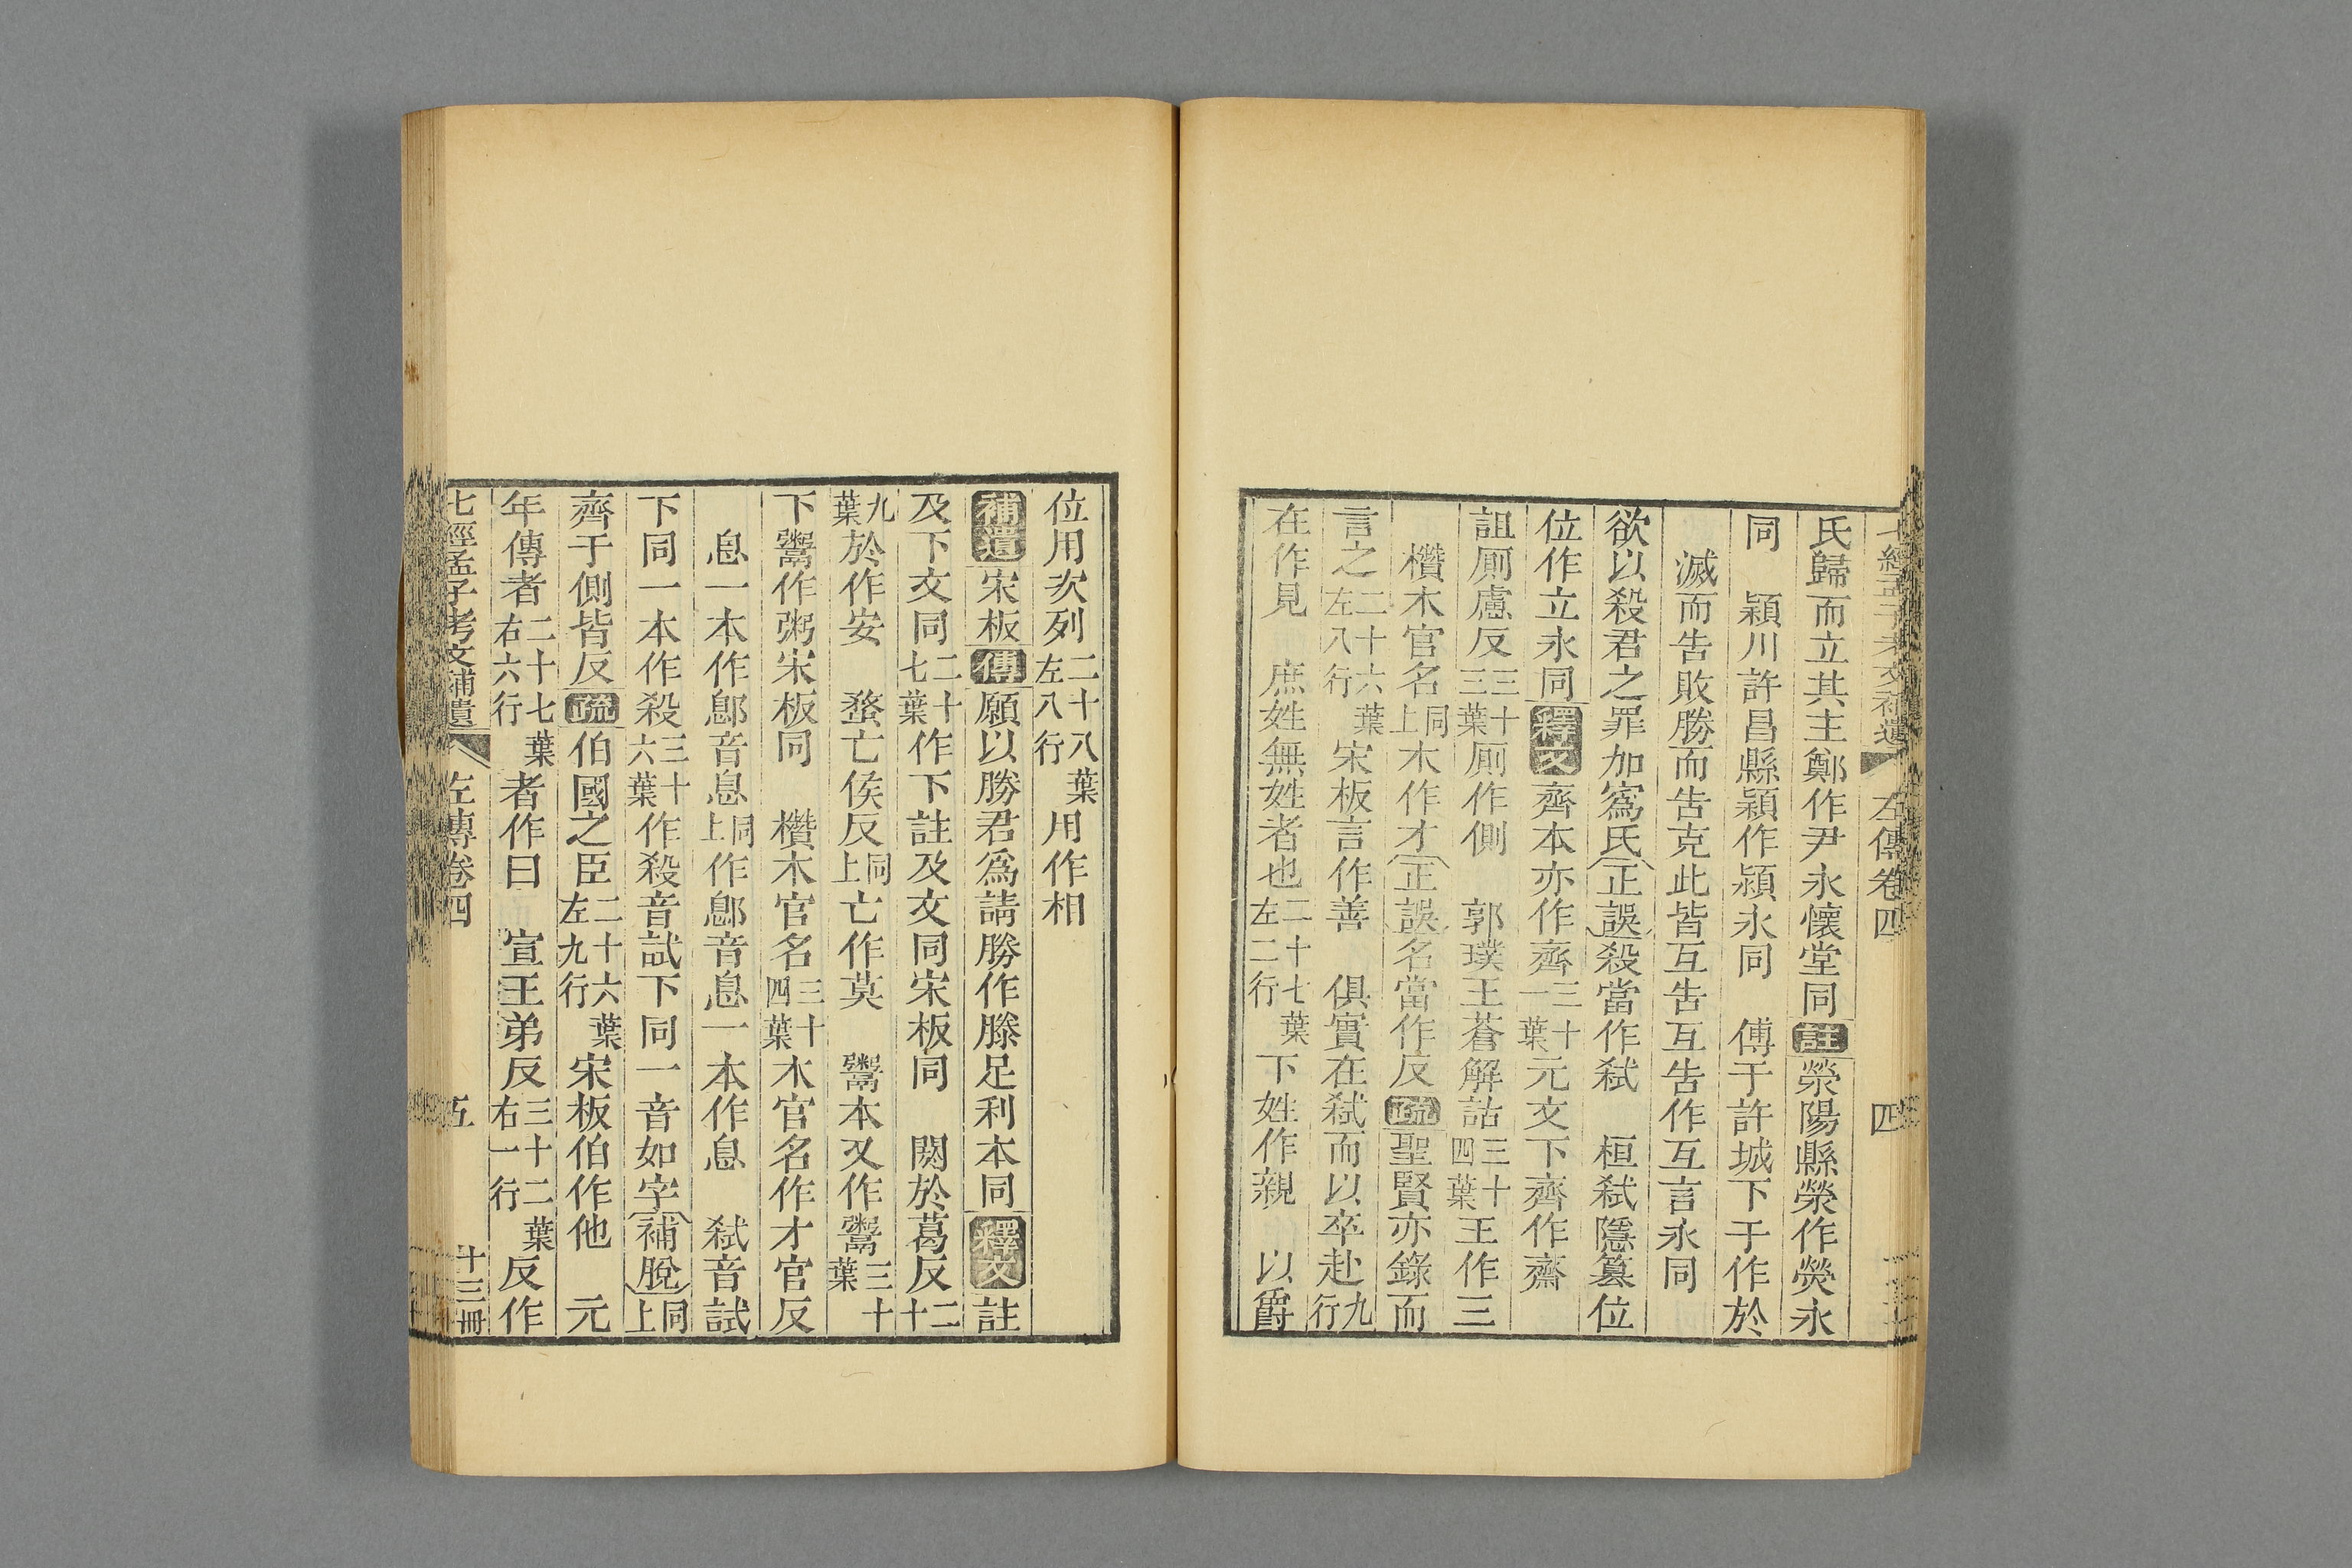 七經孟子考文補遺 左傳卷四 四
氏歸而立其主鄭作尹永懷堂同 註 滎陽縣滎作熒永
同 潁川許昌縣潁作頴永同 傅于許城下于作於
滅而告敗勝而告克此皆互告互告作互言永同
欲以殺君之罪加寪氏 正誤 殺當作弒 桓弒隱簒位
位作立永同 釋文 齊本亦作齊三十一葉元文下齊作齋
詛厠慮反三十三葉厠作側 郭璞王蒼解詁三十四葉王作三
欑木官名同上木作才 正誤 名當作反 疏 聖賢亦錄而
言之二十六葉左八行宋板言作善 俱實在弒而以卒赴九行
在作見 庶姓無姓者也二十七葉左二行下姓作親 以爵
位用次列二十八葉左八行用作相
補遺 宋板 傳 願以勝君爲請勝作滕足利本同 釋文 註
及下文同二十七葉作下註及文同宋板同 閼於葛反二十
九葉於作安 蝥亡侯反同上亡作莫 鬻本又作鬻三十葉
下鬻作粥宋板同 欑木官名三十四葉木官名作才官反
息一本作鄎音息同上作鄎音息一本作息 弒音試
下同一本作殺三十六葉作殺音試下同一音如字 補脫 同上
齊于側皆反 疏 伯國之臣二十六葉左九行宋板伯作他 元
年傳者二十七葉右六行者作曰 宣王弟反三十二葉右一行反作
七經孟子考文補遺 左傳卷四 五 十三冊